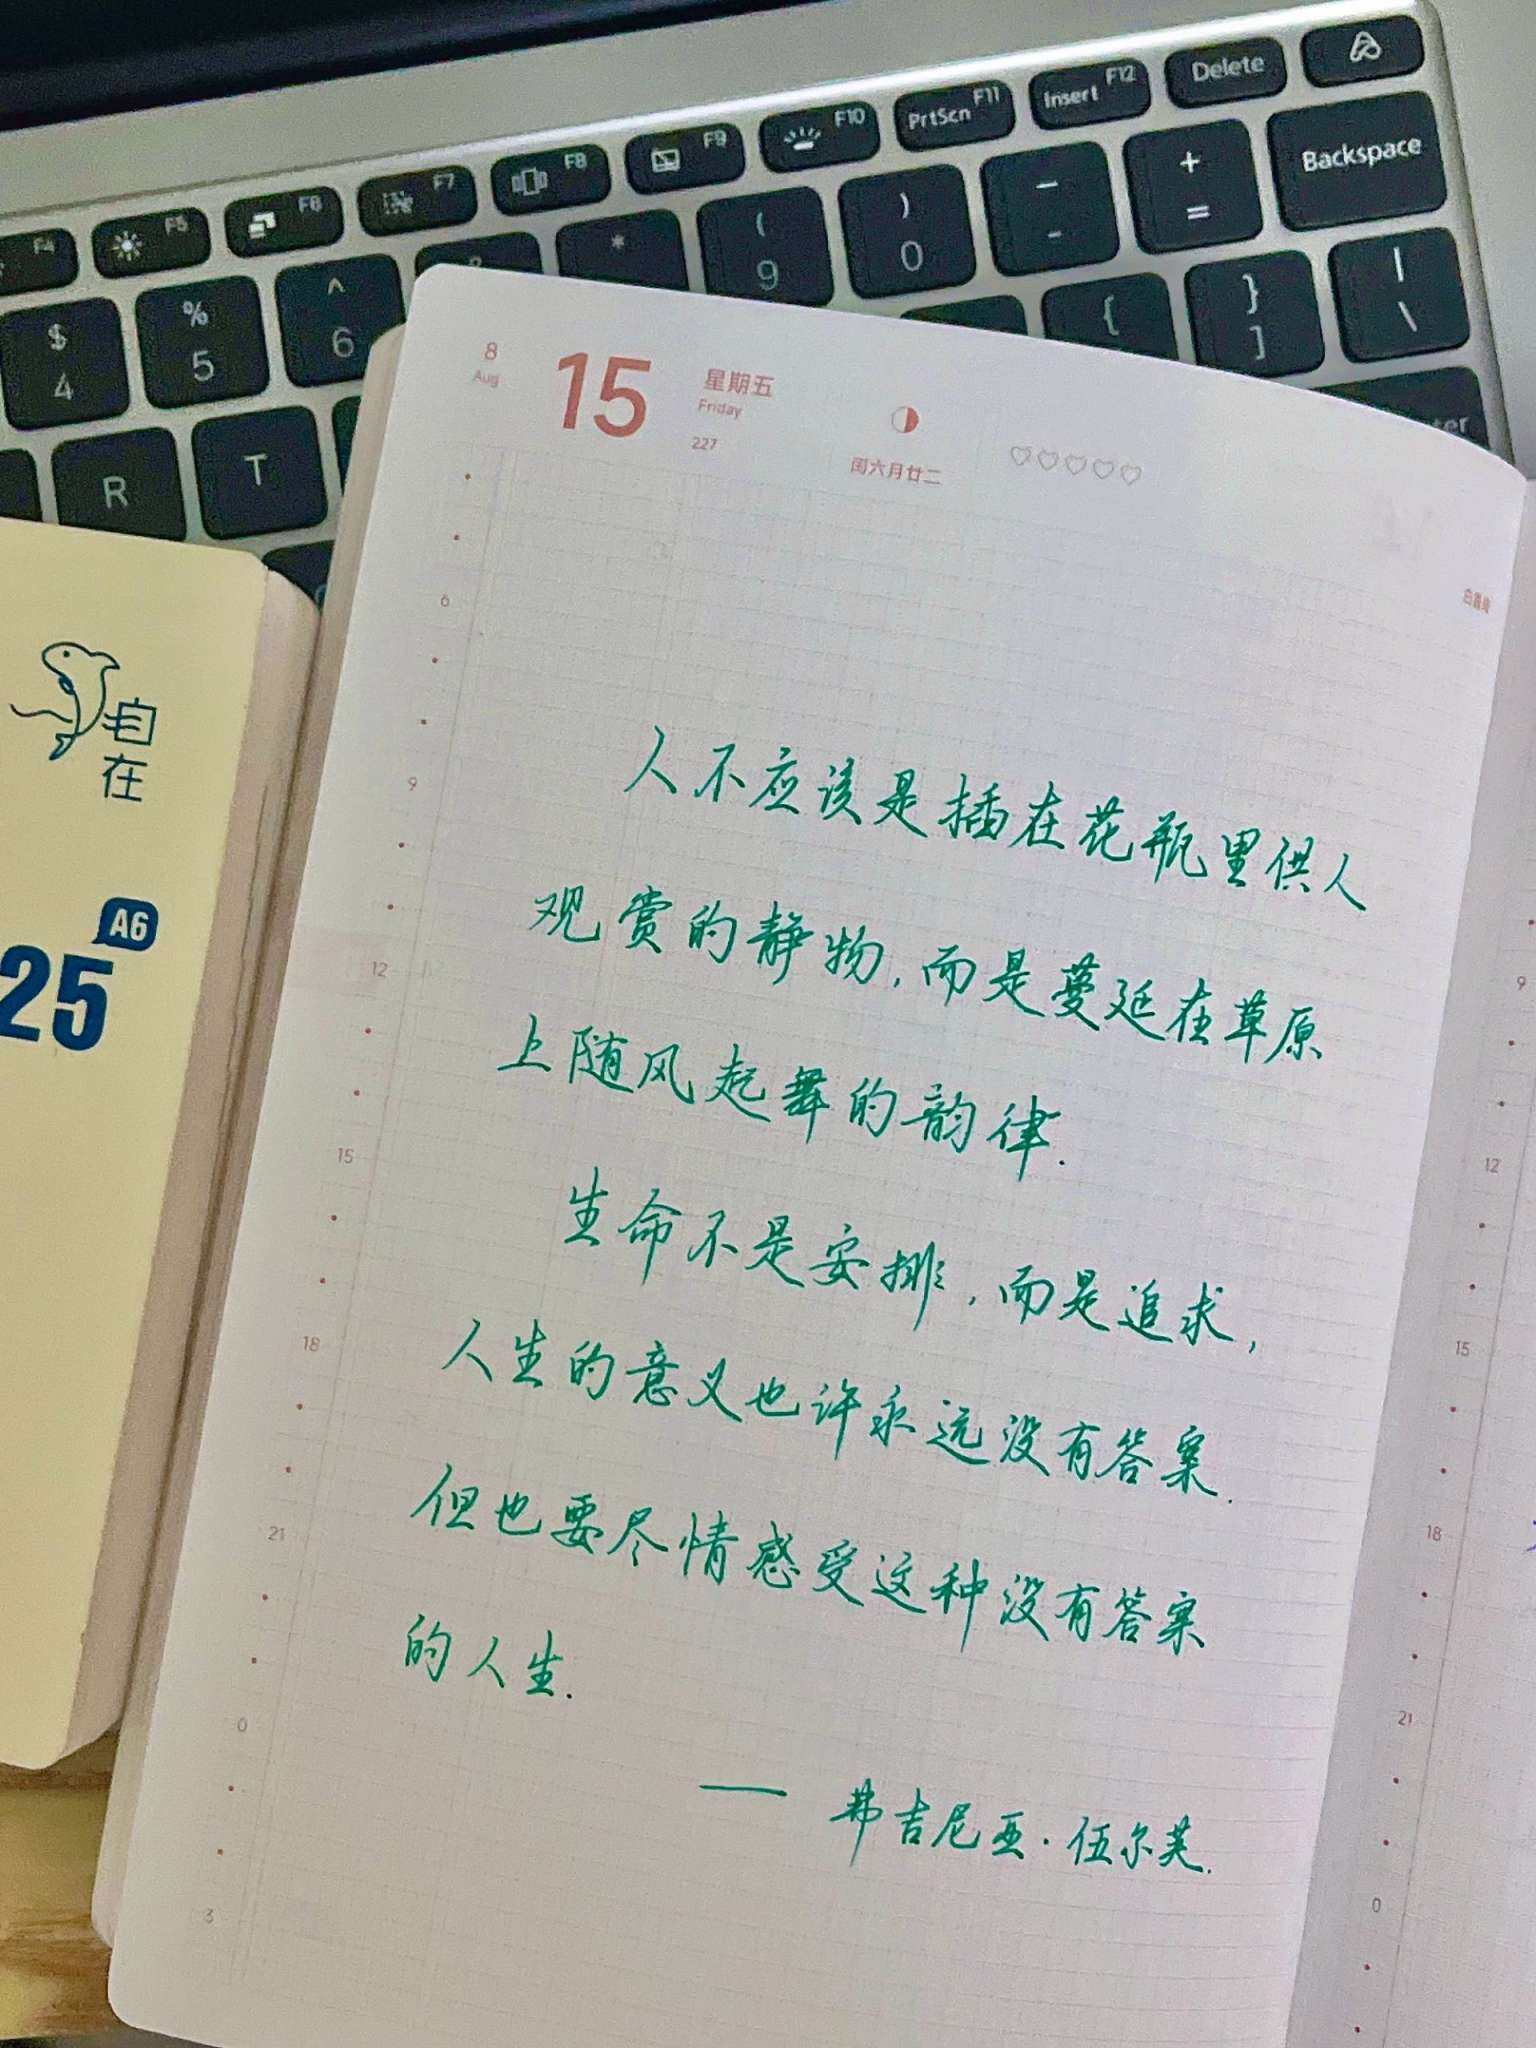 F4 F5 F6 F7 F8 F9 F10 PrtScn F11 Insert F12 Delete
$ 4 % 5 ^ 6 * ( 9 ) 0 - + = Backspace
{ } ] | \
R T
自在
A6
25
8
Aug
15
星期五
Friday
227
闰六月廿二
6
9
12
15
18
21
0
3
人不应该是插在花瓶里供人
观赏的静物,而是蔓延在草原
上随风起舞的韵律.
生命不是安排,而是追求,
人生的意义也许永远没有答案.
但也要尽情感受这种没有答案
的人生.
—— 弗吉尼亚·伍尔芙.
9
12
15
18
21
0